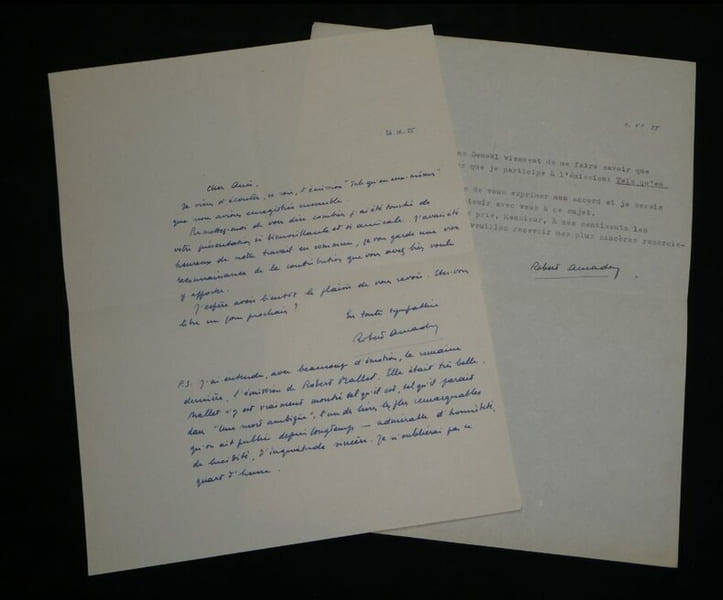 26.IX.55
Cher Ami,
Je viens d'écouter, ce soir, l'émission "Tels qu'en eux-mêmes"
que nous avions enregistrée ensemble.
Permettez-moi de vous dire combien j'ai été touché de
votre présentation si bienveillante et si amicale. J'avais été
heureux de notre travail en commun, je vous garde une vive
reconnaissance de la contribution que vous avez bien voulu
y apporter.
J'espère avoir bientôt le plaisir de vous revoir. Êtes-vous
libre un jour prochain ?
En toute sympathie
Robert Amadou
P.S. J'ai entendu, avec beaucoup d'émotion, la semaine
dernière, l'émission de Robert Mallet. Elle était très belle.
Mallet s'y est vraiment montré tel qu'il est, tel qu'il paraît
dans "Une mort ambiguë", l'un des livres les plus remarquables
qu'on ait publié depuis longtemps — admirable d'honnêteté,
de lucidité, d'inquiétude sincère. Je n'oublierai pas ce
quart d'heure.
VI 55
viennent de me faire savoir que
que je participe à l'émission: Tels qu'en
de vous exprimer mon accord et je serais
avec vous à ce sujet.
prie, Monsieur, à mes sentiments les
veuillez recevoir mes plus sincères remercie-
Robert Amadou